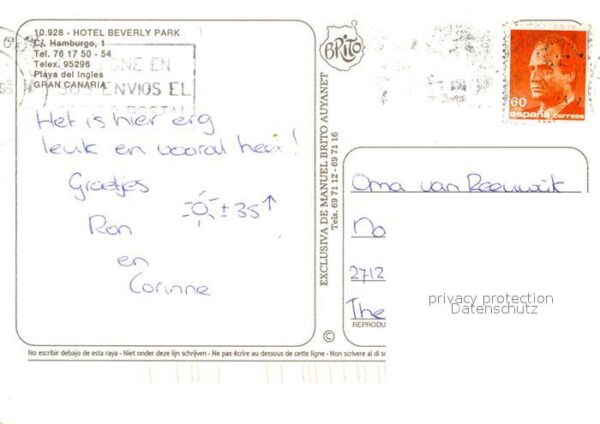 10.928 - HOTEL BEVERLY PARK
C/. Hamburgo, 1
Tel. 76 17 50 - 54
Telex. 95296
Playa del Ingles
GRAN CANARIA
ENVIOS EL
Het is hier erg
leuk en vooral heet!
Groetjes
± 35 ↑
Ron
en
Corinne
BRITO
EXCLUSIVA DE MANUEL BRITO AUYANET
Tels. 69 71 12 - 69 71 16
©
60
españa correos
Oma van Reeuwijk
No
2712
The
REPRODU
privacy protection
Datenschutz
No escribir debajo de esta raya - Niet onder deze lijn schrijven - Ne pas écrire au dessous de cette ligne - Non scrivere al di so